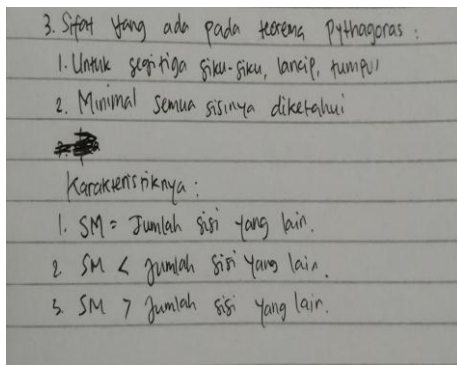 3. Sifat yang ada pada teorema Pythagoras :
1. Untuk segitiga siku-siku, lancip, tumpul
2. Minimal semua sisinya diketahui
Karakteristiknya :
1. SM = Jumlah sisi yang lain.
2. SM < Jumlah sisi yang lain.
3. SM > Jumlah sisi yang lain.